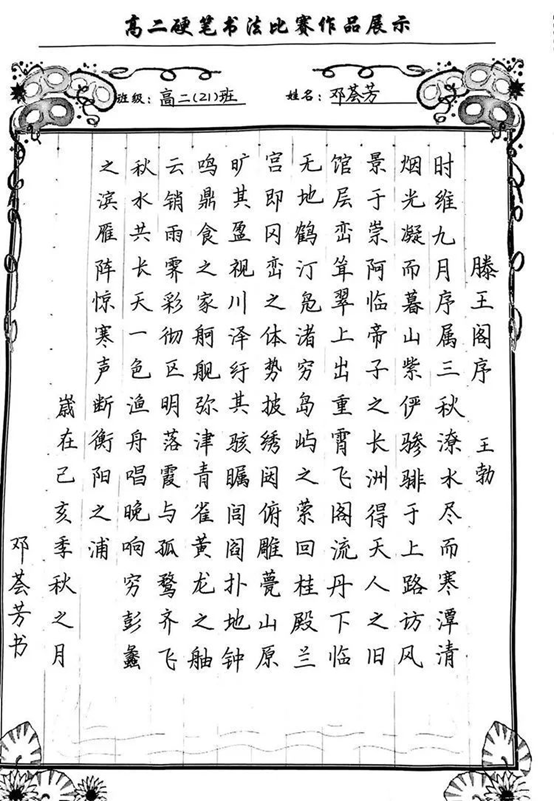 高二硬笔书法比赛作品展示
班级：高二(21)班 姓名：邓荟芳
滕王阁序 王勃
时维九月序属三秋潦水尽而寒潭清
烟光凝而暮山紫俨骖騑于上路访风
景于崇阿临帝子之长洲得天人之旧
馆层峦耸翠上出重霄飞阁流丹下临
无地鹤汀凫渚穷岛屿之萦回桂殿兰
宫即冈峦之体势披绣闼俯雕甍山原
旷其盈视川泽纡其骇瞩闾阎扑地钟
鸣鼎食之家舸舰弥津青雀黄龙之舳
云销雨霁彩彻区明落霞与孤鹜齐飞
秋水共长天一色渔舟唱晚响穷彭蠡
之滨雁阵惊寒声断衡阳之浦
崴在己亥季秋之月
邓荟芳书